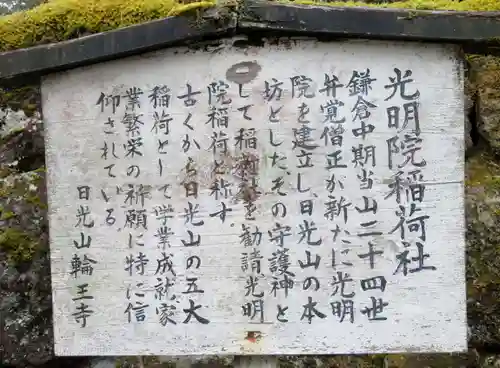 光明院稲荷社
鎌倉中期当山二十四世
弁覚僧正が新たに光明
院を建立し、日光山の本
坊とした。その守護神と
して稲荷社を勧請光明
院稲荷と称す。
古くから日光山の五大
稲荷として学業成就家
業繁栄の祈願に特に信
仰されている。
日光山輪王寺